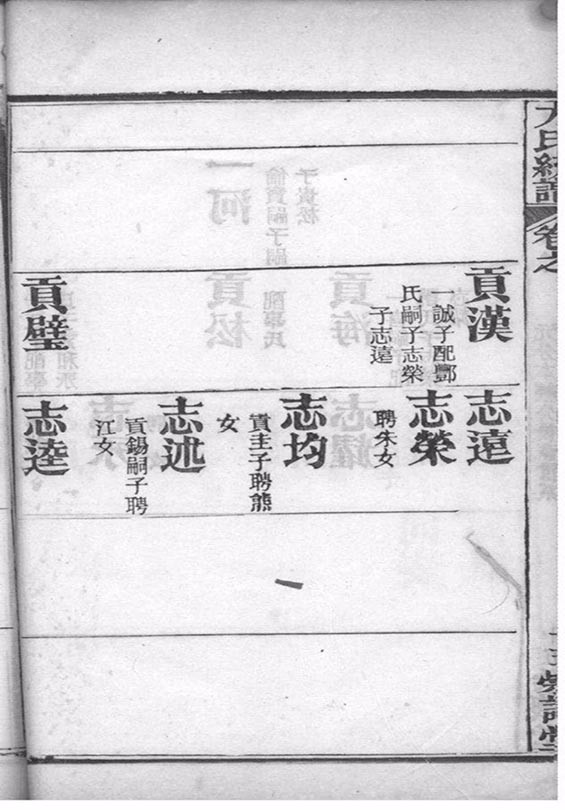 卷之
貢漢
一誠子配酆
氏嗣子志榮
子志遠
貢璧
志遠
志榮
聘朱女
志均
貢圭子聘熊
女
志述
貢錫嗣子聘
江女
志逵